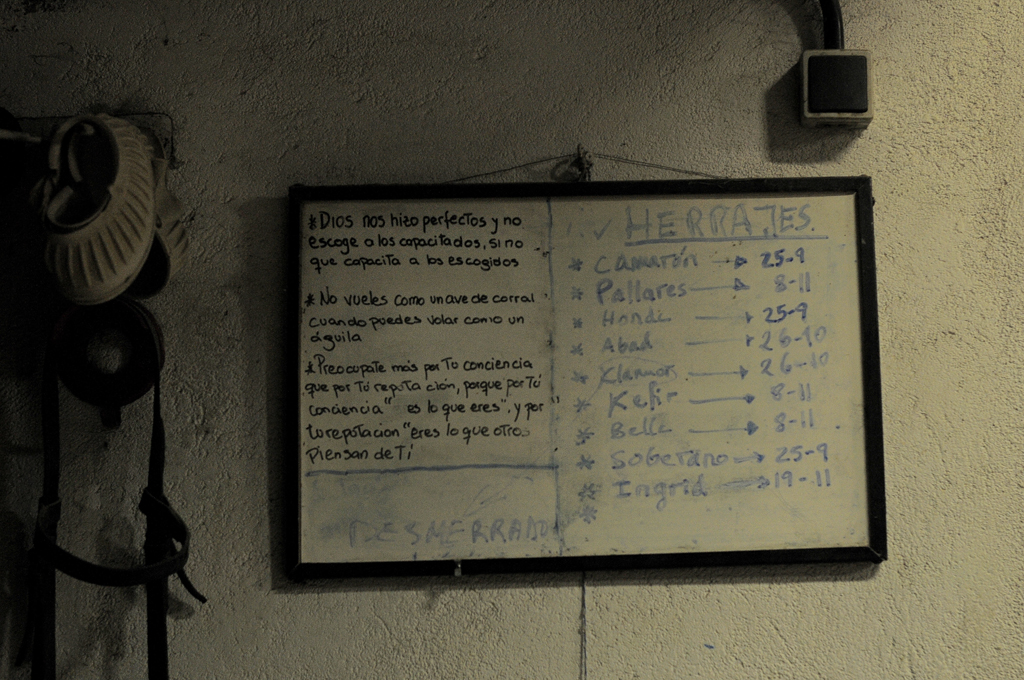 *Dios nos hizo perfectos y no
escoge a los capacitados, si no
que capacita a los escogidos
* No vueles como un ave de corral
cuando puedes volar como un
águila
*Preocupate más por Tu conciencia
que por Tú reputación, porque por Tú
conciencia" es lo que eres", y por
tu reputacion "eres lo que otros
piensan de Tí
DESHERRADO
HERRAJES.
* Camarón → 25-9
* Pallares → 8-11
* → 25-9
* Abad → 26-10
* → 26-10
* Kefir → 8-11
* Belle → 8-11
* Soberano → 25-9
* Ingrid → 19-11
*